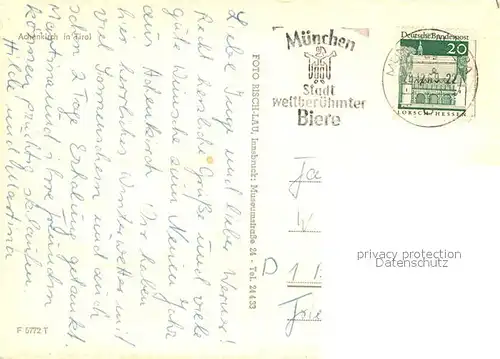 Achenkirch in Tirol
Liebe Inge und lieber Werner!
Recht herzliche Grüße und viele
gute Wünsche zum Neuen Jahr
aus Achenkirch. Wir haben
hier herrliches Winterwetter mit
viel Sonnenschein und auch
schon 2 Tage Erholung getankt.
Martina und ihre Freundin
können prächtig skilaufen.
Hilde und Martina
F 5772 T
FOTO RISCH-LAU, Innsbruck: Museumstraße 24 - Tel. 24 4 33
München
Stadt
weltberühmter
Biere
Deutsche Bundespost
20
LORSCH/HESSEN
D 1
privacy protection
Datenschutz